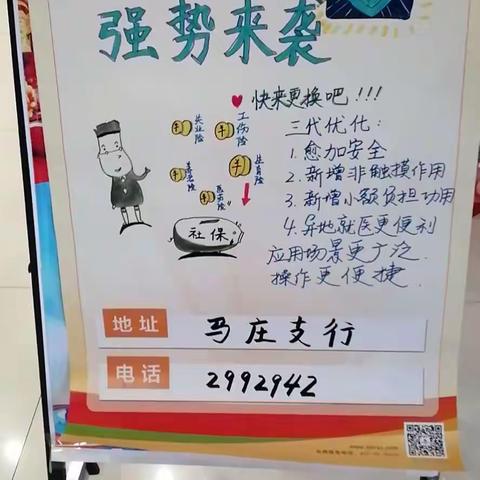 强势来袭
快来更换吧!!!
失业险
工伤险
养老险
生育险
医疗险
社保
三代优化:
1.愈加安全
2.新增非触摸作用
3.新增小额负担功用
4.异地就医更便利
应用场景更广泛.
操作更便捷.
地址 马庄支行
电话 2992942